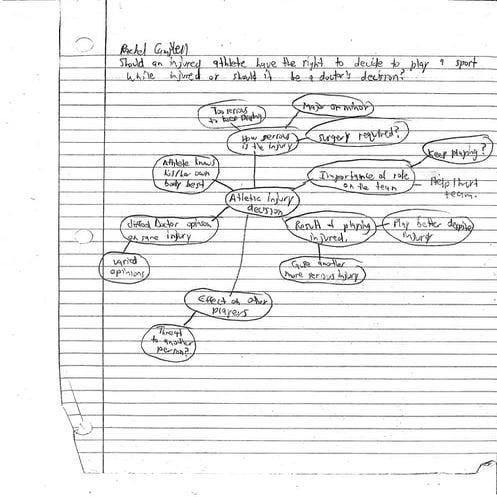 Rachel
Should an injured athlete have the right to decide to play a sport
while injured or should it be a doctor's decision?
Too serious
to keep playing
Major or minor
How serious
is the injury
Surgery required?
Keep playing?
Athlete knows
his/her own
body best
Importance of role
on the team
Help/hurt
team.
Athletic Injury
decision
doctor opinion
on same injury
Result of playing
injured.
Play better despite
injury
varied
opinions
another
more serious injury
Effect on other
players
Threat
to another
person?